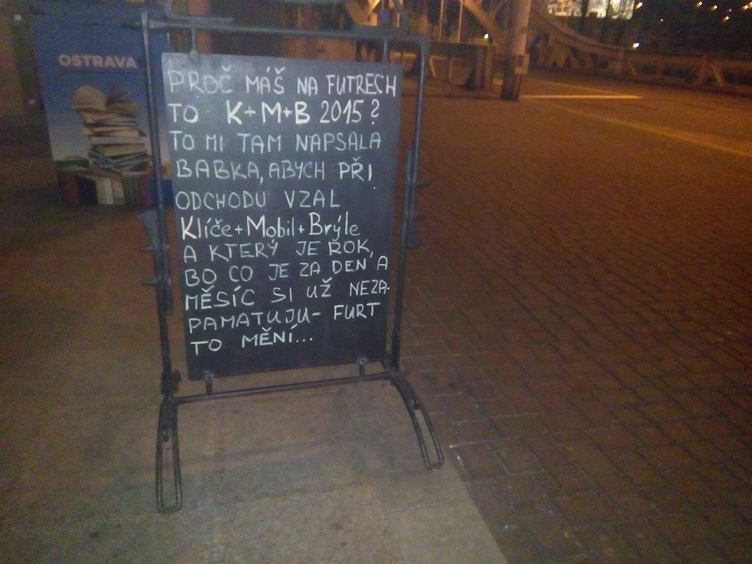 OSTRAVA
PROČ MÁŠ NA FUTRECH
TO K+M+B 2015?
TO MI TAM NAPSALA
BABKA, ABYCH PŘI
ODCHODU VZAL
Klíče+Mobil+Brýle
A KTERÝ JE ROK,
BO CO JE ZA DEN A
MĚSÍC SI UŽ NEZA-
PAMATUJU- FURT
TO MĚNÍ...